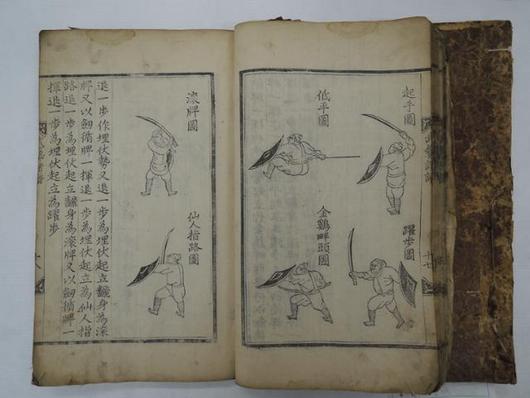 起手圖
躍步圖
低平圖
金鷄畔頭圖
十七
滾牌圖
仙人指路圖
退一步作埋伏勢又退一步為埋伏起立飜身為滾
牌又以劒循牌一揮退一步為埋伏起立為仙人指
路退一步為埋伏起立飜身為滾牌又以劒循牌一
揮退一步為埋伏起立為躍步